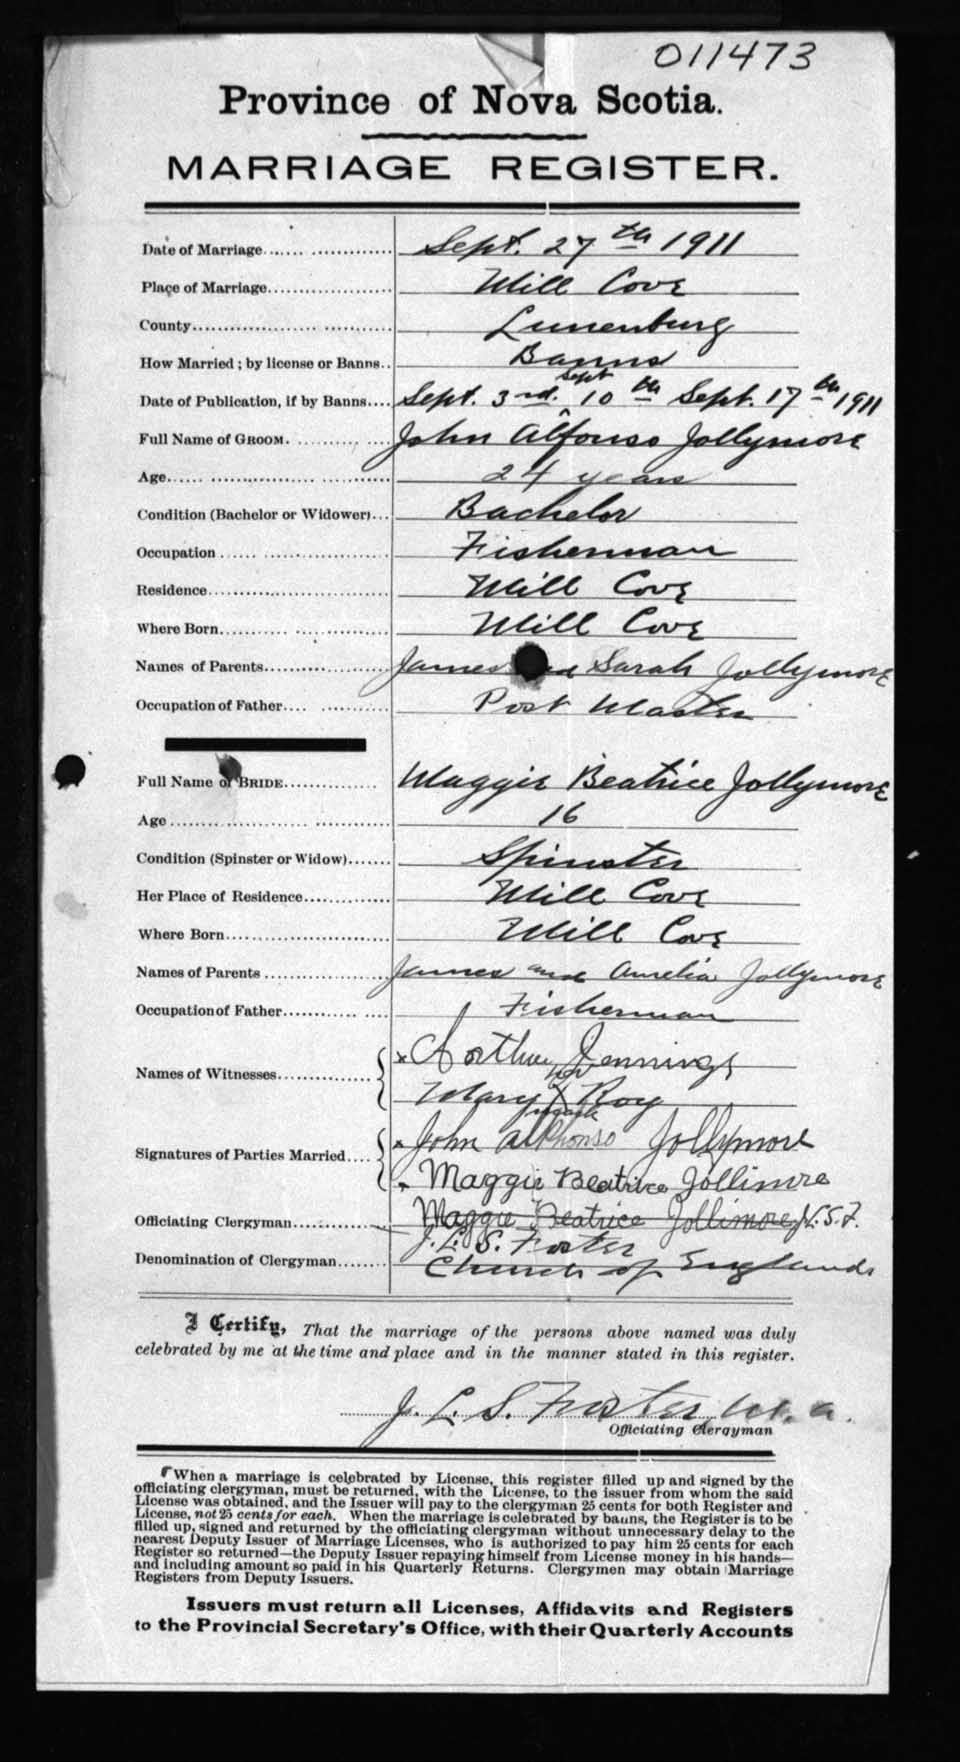 011473
Province of Nova Scotia.
MARRIAGE REGISTER.
Date of Marriage Sept. 27th 1911
Place of Marriage Mill Cove
County Lunenburg
How Married; by license or Banns Banns
Date of Publication, if by Banns Sept. 3rd. Sept 10th Sept. 17th 1911
Full Name of GROOM. John Alfonso Jollymore
Age 24 years
Condition (Bachelor or Widower) Bachelor
Occupation Fisherman
Residence Mill Cove
Where Born Mill Cove
Names of Parents James Sarah Jollymore
Occupation of Father Post Master
Full Name of BRIDE Maggie Beatrice Jollymore
Age 16
Condition (Spinster or Widow) Spinster
Her Place of Residence Mill Cove
Where Born Mill Cove
Names of Parents James and Amelia Jollymore
Occupation of Father Fisherman
Names of Witnesses x Arthur Jennings
Mary her x mark Roy
Signatures of Parties Married x John Alphonso Jollymore
x Maggie Beatrice Jollimre
Officiating Clergyman Maggie Beatrice Jollimore J.L.S.F.
J. L. S. Foster
Denomination of Clergyman Church of England
I Certify, That the marriage of the persons above named was duly
celebrated by me at the time and place and in the manner stated in this register.
J. L. S. Foster, M.A.
Officiating Clergyman
When a marriage is celebrated by License, this register filled up and signed by the
officiating clergyman, must be returned, with the License, to the issuer from whom the said
License was obtained, and the Issuer will pay to the clergyman 25 cents for both Register and
License, not 25 cents for each. When the marriage is celebrated by banns, the Register is to be
filled up, signed and returned by the officiating clergyman without unnecessary delay to the
nearest Deputy Issuer of Marriage Licenses, who is authorized to pay him 25 cents for each
Register so returned—the Deputy Issuer repaying himself from License money in his hands—
and including amount so paid in his Quarterly Returns. Clergymen may obtain Marriage
Registers from Deputy Issuers.
Issuers must return all Licenses, Affidavits and Registers
to the Provincial Secretary's Office, with their Quarterly Accounts